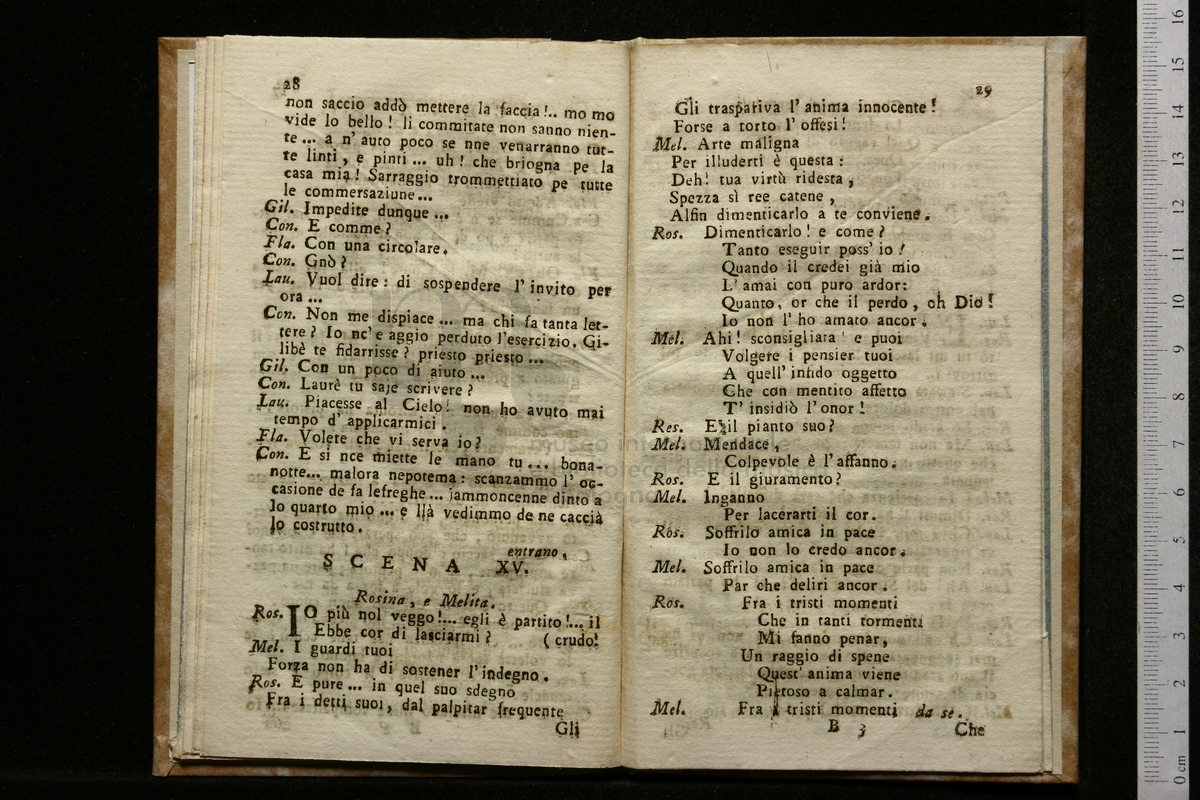 28
non saccio addò mettere la faccia!.. mo mo
vide lo bello! li commitate non sanno nien-
te ... a n' auto poco se nne venarranno tut-
te linti, e pinti ... uh! che briogna pe la
casa mia! Sarraggio trommettiato pe tutte
le commersaziune ...
Gil. Impedite dunque ...
Con. E comme?
Fla. Con una circolare.
Con. Gnò?
Lau. Vuol dire: di sospendere l' invito per
ora ...
Con. Non me dispiace ... ma chi fa tanta let-
tere? Io nc' e aggio perduto l'esercizio. Gi-
libè te fidarrisse? priesto priesto ...
Gil. Con un poco di aiuto ...
Con. Laurè tu saje scrivere?
Lau. Piacesse al Cielo! non ho avuto mai
tempo d' applicarmici.
Fla. Volete che vi serva io?
Con. E si nce miette le mano tu ... bona-
notte... malora nepotema: scanzammo l' oc-
casione de fa lefreghe ... jammoncenne dinto a
lo quarto mio ... e llà vedimmo de ne caccià
lo costrutto.
entrano.
SCENA XV.
Rosina, e Melita.
Ros. IO più nol veggo!... egli è partito!... il
Ebbe cor di lasciarmi? (crudo!
Mel. I guardi tuoi
Forza non ha di sostener l'indegno.
Ros. E pure ... in quel suo sdegno
Fra i detti suoi, dal palpitar frequente
Gli
29
Gli traspariva l' anima innocente!
Forse a torto l' offesi!
Mel. Arte maligna
Per illuderti è questa:
Deh! tua virtù ridesta,
Spezza sì ree catene,
Alfin dimenticarlo a te conviene.
Ros. Dimenticarlo! e come?
Tanto eseguir poss' io!
Quando il credei già mio
L' amai con puro ardor:
Quanto, or che il perdo, oh Dio!
Io non l' ho amato ancor.
Mel. Ahi! sconsigliata! e puoi
Volgere i pensier tuoi
A quell' infido oggetto
Che con mentito affetto
T' insidiò l' onor!
Res. E il pianto suo?
Mel. Mendace,
Colpevole è l'affanno.
Ros. E il giuramento?
Mel. Inganno
Per lacerarti il cor.
Ros. Soffrilo amica in pace
Io non lo credo ancor.
Mel. Soffrilo amica in pace
Par che deliri ancor.
Ros. Fra i tristi momenti
Che in tanti tormenti
Mi fanno penar,
Un raggio di spene
Quest' anima viene
Pietoso a calmar.
Mel. Fra i tristi momenti da se.
B 3 Che